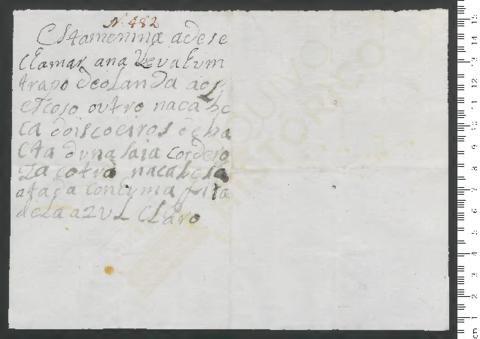 Nº 482
Esta menina a de se
chamar ana leva hum
trapo de olanda ao p
escoso outro na cabe
ca dois coeiros de ba
eta
huma saia cor de ro
za e otra na cabesa
atada con huma fita
de la azul claro